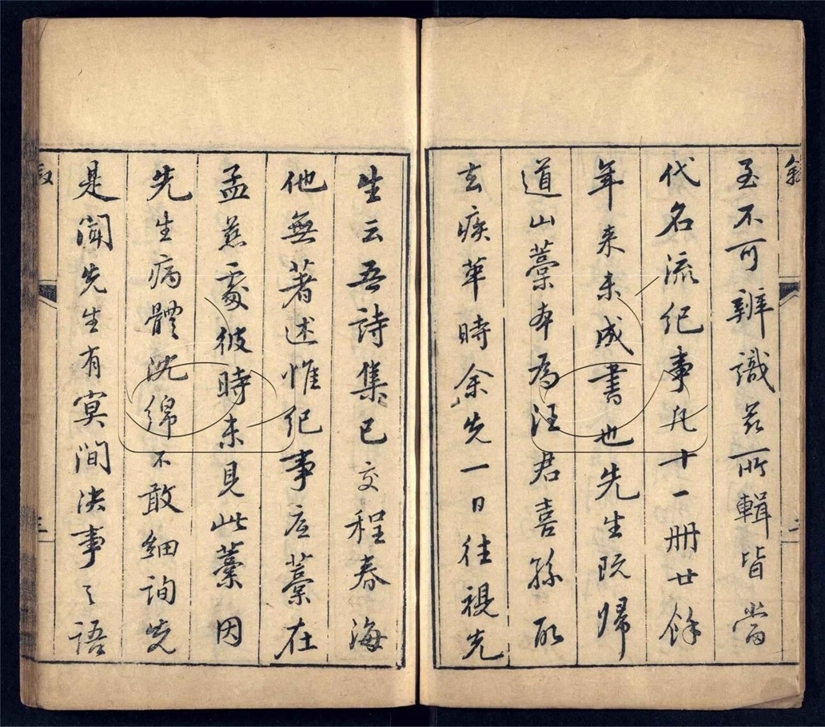 至不可辨識若所輯皆當
代名流紀事凡十一冊廿餘
年来未成書也先生既歸
道山藁本為汪君喜孫取
去疾革時余先一日往視先
生云吾詩集已交程春海
他無著述惟紀事底藁在
孟慈處彼時未見此藁因
先生病體沈綿不敢細詢先
是聞先生有冥間決事之語